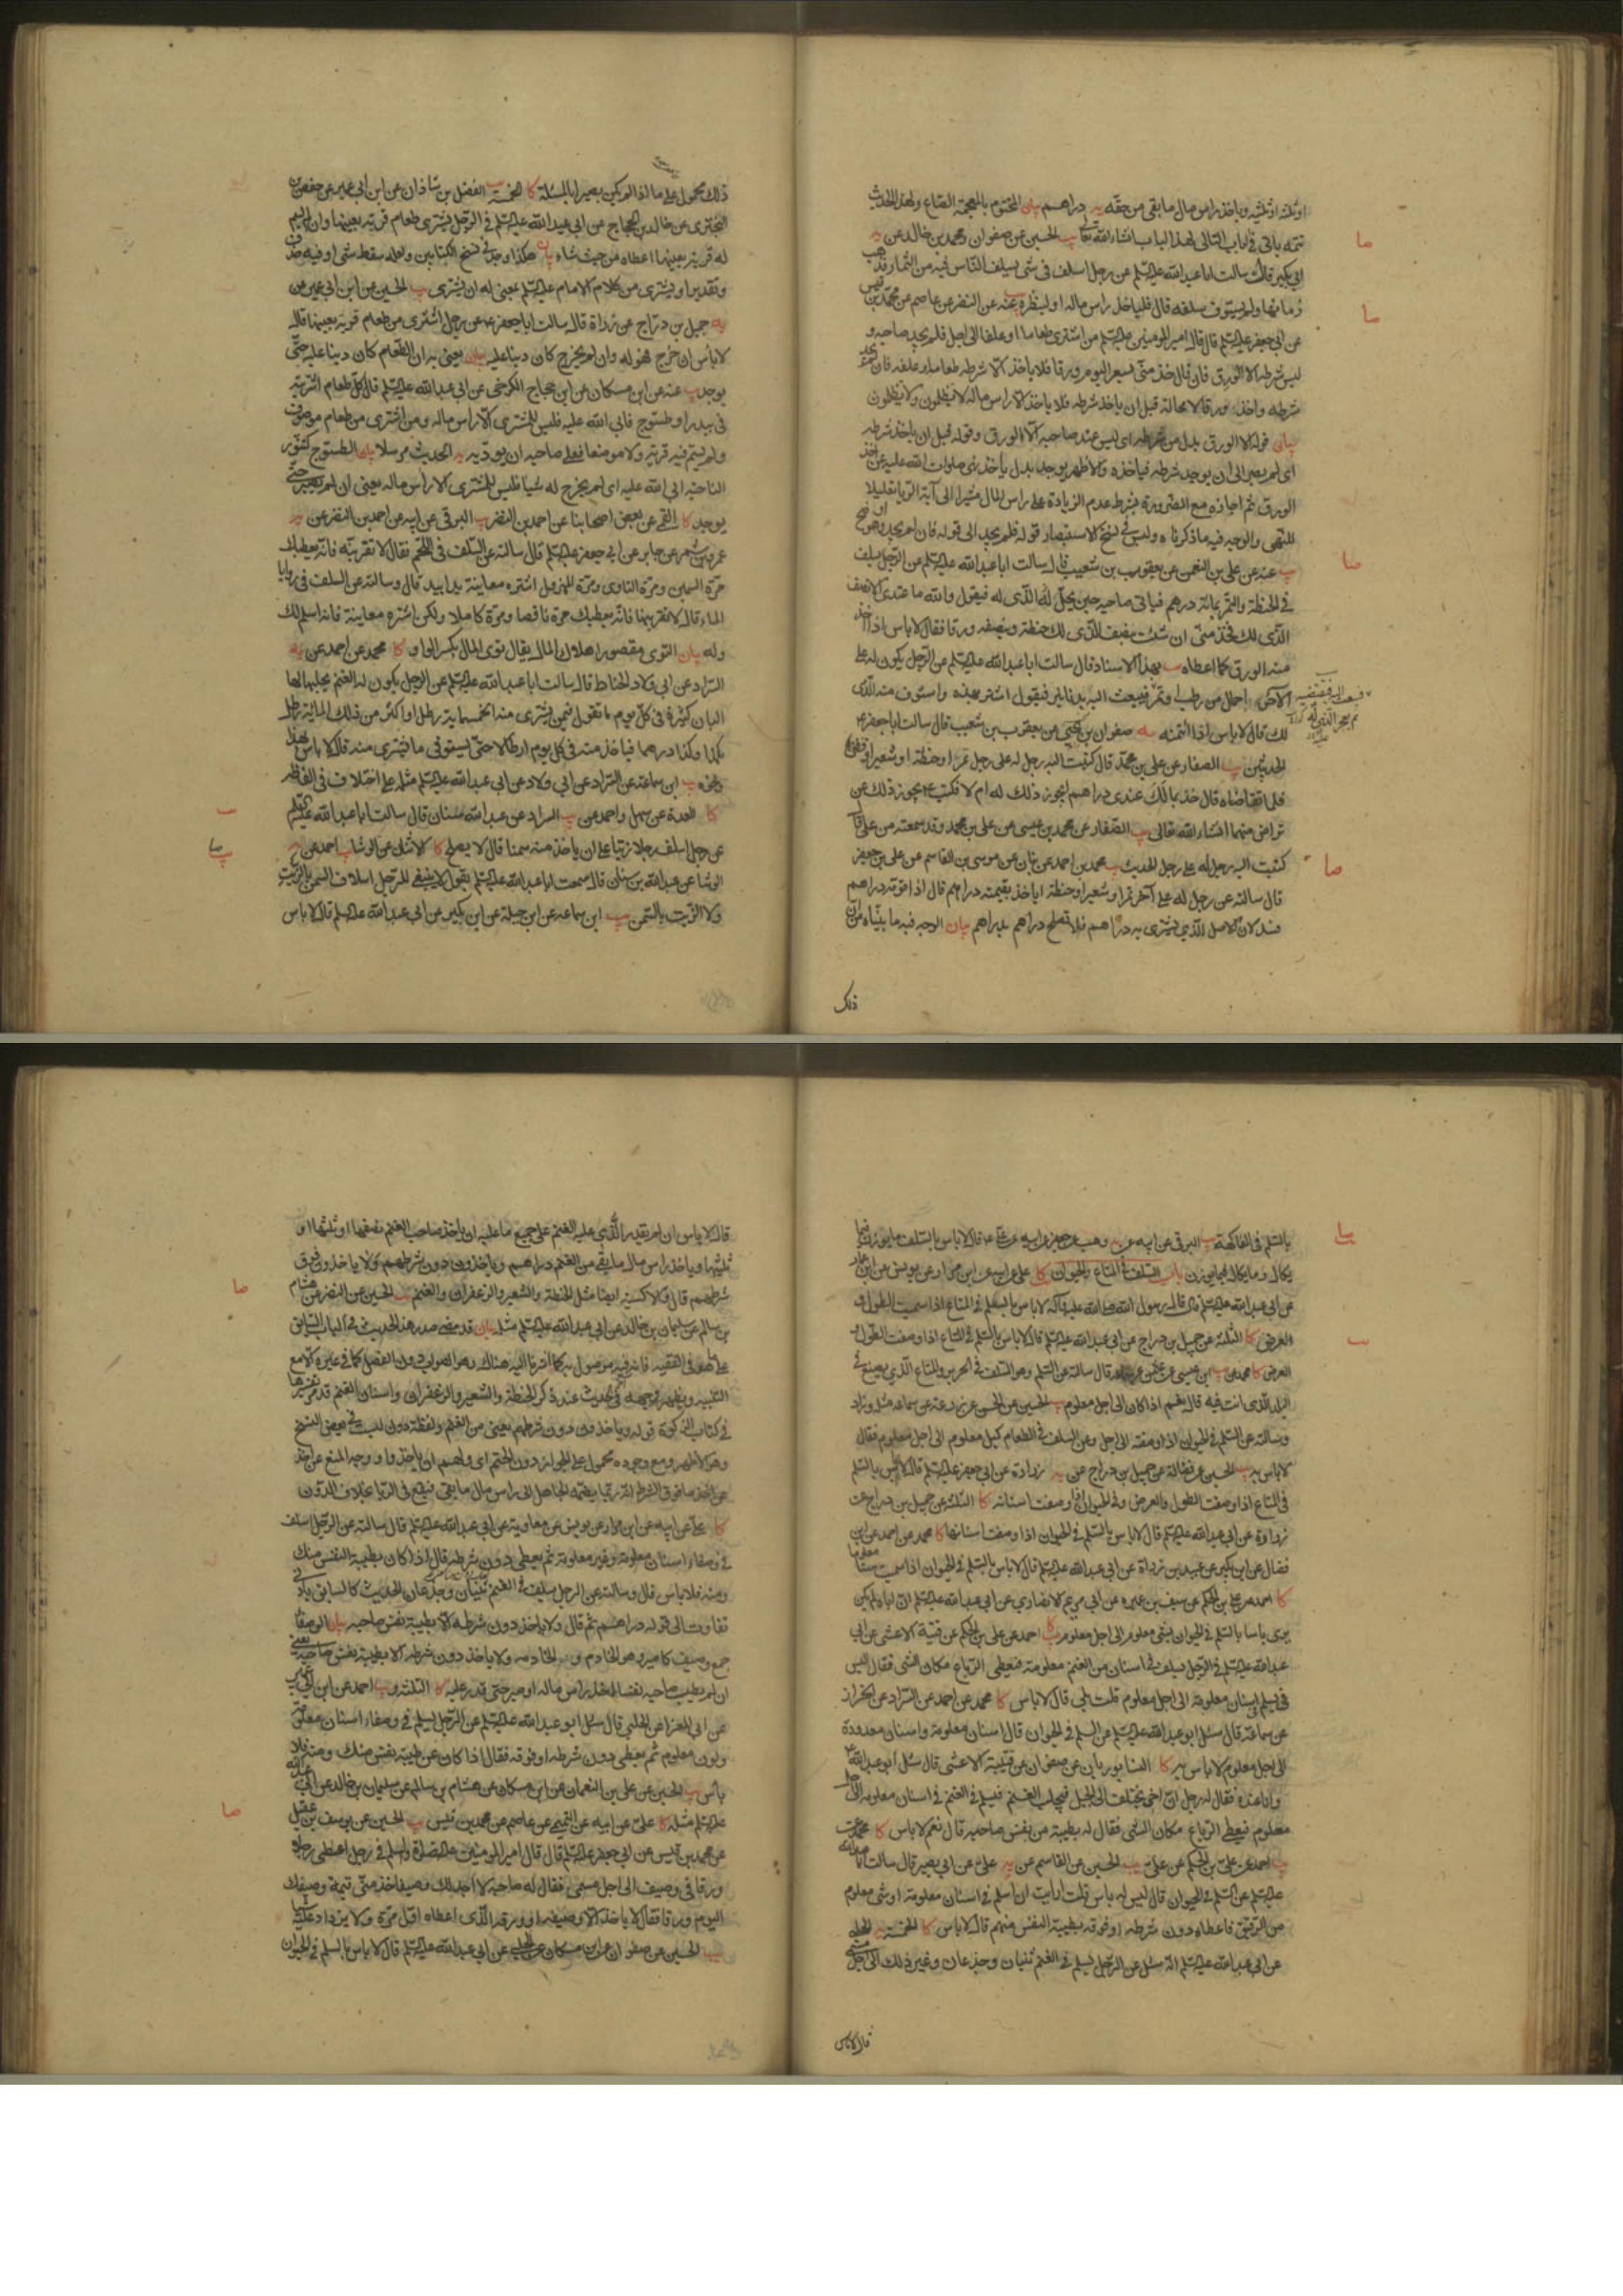 اوثلثه اوثلثيه وياخذ راس مال ما بقى من حقه يه دراهم بيان المختوم بالمعجمة الصاع ولهذا الحديث
تتمه ياتى فى الباب التالى لهذا الباب انشاء الله تعالى يب الحسين عن صفوان ومحمد بن خالد عن يه
ابن بكير قال سالت ابا عبد الله عليه السلم عن رجل اسلف فى شئ يسلف الناس فيه من الثمار فذهب
زمانها ولم يستوف سلفه قال فلياخذ راس ماله او لينظره يب عنه عن النضر عن عاصم عن محمد بن قيس
عن ابى جعفر عليه السلم قال قال امير المومنين عليه السلم من اشترى طعاما او علفا الى اجل فلم يجد صاحبه و
ليس شرطه الا الورق فان قال خذ منى بسعر اليوم ورقا فلا ياخذ الا شرطه طعامه او علفه فان لم يجد
شرطه واخذ ورقا لا محالة قبل ان ياخذ شرطه فلا ياخذ الا راس ماله لا تظلمون ولا تظلمون
بيان قوله الا الورق بدل من شرطه اى ليس عند صاحبه الا الورق وقوله قبل ان ياخذ شرطه
اى لم يصبر الى ان يوجد شرطه فياخذه والاظهر يوجد بدل ياخذ نهى صلوات الله عليه عن اخذ
الورق ثم اجازه مع الضرورة بشرط عدم الزيادة على راس المال مشيرا الى آية الربا تعليلا
للنهى والوجه فيه ما ذكرناه وليس فى نسخ الاستبصار قوله فلم يجد الى قوله فان لم يجد وهو اوضح
يب عنه عن على بن النعمن عن يعقوب بن شعيب قال سالت ابا عبد الله عليه السلم عن الرجل يسلف
فى الحنطة والتمر بمائة درهم فياتى صاحبه حين يحل له الذى له فيقول والله ما عندى الا نصف
الذى لك فخذ منى ان شئت بنصف الذى لك حنطة وبنصفه ورقا فقال لا باس اذا اخذ
منه الورق كما اعطاه يب بهذا الاسناد قال سالت ابا عبد الله عليه السلم عن الرجل يكون له على
الآخر احمال من رطب او تمر فيبعث اليه بدنانير فيقول اشتر بهذه واستوف منه الذى
لك قال لا باس اذا ائتمنه يه صفوان بن يحيى عن يعقوب بن شعيب قال سالت ابا جعفر ع
الحديثين يب الصفار عن على بن محمد قال كتبت اليه رجل له على رجل تمر او حنطة او شعير او قطن
فلما تقاضاه قال خذ بمالك عندى دراهم ايجوز ذلك له ام لا فكتب ع يجوز ذلك عن
تراض منهما انشاء الله تعالى يب الصفار عن محمد بن عيسى عن على بن محمد وقد سمعته من على قال
كتبت اليه رجل له على رجل الحديث يب محمد بن احمد عن بنان عن موسى بن القاسم عن على بن جعفر
قال سالته عن رجل له على آخر تمر او شعير او حنطة اياخذ بقيمته دراهم قال اذا قومه دراهم
فسد لان الاصل الذى يشترى به دراهم فلا تصلح دراهم بدراهم بيان الوجه فيه ما بيناه من ان
ذلك
ذلك محمول على ما اذا لم يكن بصيرا بالمسئلة كا الخمسة يب الفضل بن شاذان عن ابن ابى عمير عن حفص بن
البخترى عن خالد بن الحجاج عن ابى عبد الله عليه السلم فى الرجل يشترى طعام قرية بعينها وان لم يسم
له قرية بعينها اعطاه من حيث شاء بيان هكذا وجد فى نسخ الكتابين ولعله سقط شئ او فيه حذف
وتقدير او يشترى من كلام الامام عليه السلم بمعنى له ان يشترى يب الحسين عن ابن ابى عمير عن
يه جميل بن دراج عن زرارة قال سالت ابا جعفر ع عن رجل اشترى من طعام قرية بعينها قال
لا باس ان خرج فهو له وان لم يخرج كان دينا عليه بيان يعنى به ان الطعام كان دينا عليه حتى
يوجد يب عنه عن ابن مسكان عن ابن حجاج الكرخى عن ابى عبد الله عليه السلم قال كل طعام اشتريته
فى بيدر او طسوج فاتى الله عليه فليس للمشترى الا راس ماله ومن اشترى من طعام موصوف
ولم يسم فيه قرية ولا موضعا فعلى صاحبه ان يوديه يه الحديث مرسلا بيان الطسوج كسنور
الناحية اتى الله عليه اى لم يخرج له شيا فليس للمشترى الا راس ماله يعنى ان لم يصبر حتى
يوجد كا القمى عن بعض اصحابنا عن احمد بن النضر يب البرقى عن ابيه عن احمد بن النضر عن يه
عمرو بن شمر عن جابر عن ابى جعفر عليه السلم قال سالته عن السلف فى اللحم فقال لا تقربنه فانه يعطيك
مرة السمين ومرة التاوى ومرة المهزول اشتره معاينة يدا بيد قال وسالته عن السلف فى روايا
الماء قال لا تقربها فانه يعطيك مرة ناقصا ومرة كاملا ولكن اشتره معاينة فانه اسلم لك
وله بيان التوى مقصورا هلاك المال يقال توى المال بكسر الواو كا محمد عن احمد عن يه
السراد عن ابى ولاد الحناط قال سالت ابا عبد الله عليه السلم عن الرجل يكون له الغنم يحلبها لها
البان كثيرة فى كل يوم ما تقول فيمن يشترى منه الخمسماية رطل او اكثر من ذلك الماية رطل
بكذا وكذا درهما فياخذ منه فى كل يوم ارطالا حتى يستوفى ما يشترى منه قال لا باس بهذا
ونحوه يب ابن سماعة عن السراد عن ابى ولاد عن ابى عبد الله عليه السلم مثله على اختلاف فى الفاظه
كا العدة عن سهل واحمد عن يب السراد عن عبد الله بن سنان قال سالت ابا عبد الله عليه السلم
عن رجل اسلف رجلا زيتا على ان ياخذ منه سمنا قال لا يصلح كا الاثنان عن الوشا يب احمد عن
الوشا عن عبد الله بن سنان قال سمعت ابا عبد الله عليه السلم يقول لا ينبغى للرجل اسلاف السمن بالزيت
ولا الزيت بالسمن يب ابن سماعه عن ابن جبلة عن ابن بكير عن ابى عبد الله عليه السلم قال لا باس
بالسلم فى الفاكهة يب البرقى عن ابيه عن يه وهب عن جعفر عن ابيه عن على ع قال لا باس بالسلف ما يوزن فيما
يكال وما يكال فيما يوزن باب السلف فى المتاع والحيوان كا على عن ابيه عن ابن مرار عن يونس عن ابن عمار
عن ابى عبد الله عليه السلم قال قال رسول الله صلى الله عليه وآله لا باس بالسلم فى المتاع اذا سميت الطول و
والعرض كا الثلثة عن جميل بن دراج عن ابى عبد الله عليه السلم قال لا باس بالسلم فى المتاع اذا وصفت الطول و
العرض كا محمد عن يب ابن عيسى عن عثمن عن سماعة قال سالته عن السلم وهو السلف فى الحرير والمتاع الذى يصنع فى
البلد الذى انت فيه قال نعم اذا كان الى اجل معلوم يب الحسين عن الحسن عن زرعة عن سماعه مثله وزاد
وسالته عن السلم فى الحيوان اذا وصفته الى اجل وعن السلف فى الطعام كيل معلوم الى اجل معلوم فقال
لا باس به يب الحسين عن فضالة عن جميل بن دراج عن يه زرارة عن ابى جعفر عليه السلم قال لا باس بالسلم
فى المتاع اذا وصفت الطول والعرض وفى الحيوان اذا وصفت اسنانه كا الثلثة عن جميل بن دراج عن
زرارة عن ابى عبد الله عليه السلم قال لا باس بالسلم فى الحيوان اذا وصفت اسنانها كا محمد عن احمد عن ابن
فضال عن ابن بكير عن عبيد بن زرارة عن ابى عبد الله عليه السلم قال لا باس بالسلم فى الحيوان اذا سميت سنا معلوما
كا احمد عن على بن الحكم عن سيف بن عميرة عن ابى مريم الانصارى عن ابى عبد الله عليه السلم ان اباه لم يكن
يرى باسا بالسلم فى الحيوان بشئ معلوم الى اجل معلوم كا يب احمد عن على بن الحكم عن قتيبة الاعشى عن ابى
عبد الله عليه السلم فى الرجل يسلف فى اسنان من الغنم معلومة فيعطى الرباع مكان الثنى فقال اليس
فى يسلم فى اسنان معلومة الى اجل معلوم قلت بلى قال لا باس كا محمد عن احمد عن السراد عن الخراز
عن سماعة قال سئل ابو عبد الله عليه السلم عن السلم فى الحيوان قال اسنان معلومة واسنان معدودة
الى اجل معلوم لا باس به كا النيسابوريان عن صفوان عن قتيبة الاعشى قال سئل ابو عبد الله ع
وانا عنده فقال له رجل ان اخى يختلف الى الجبل فيجلب الغنم فيسلم فى الغنم فى اسنان معلومة الى اجل
معلوم فيعطى الرباع مكان الثنى فقال له بطيبة من نفس صاحبه قال نعم لا باس كا محمد عن
يب احمد عن على بن الحكم عن على يب الحسين عن القاسم عن يه على عن ابى بصير قال سالت ابا عبد الله
عليه السلم عن السلم فى الحيوان قال ليس به باس قلت ارايت ان اسلم فى اسنان معلومة او شئ معلوم
من الرقيق فاعطاه دون شرطه او فوقه بطيبة النفس منهم قال لا باس كا الخمسة يه الحلبى
عن ابى عبد الله عليه السلم انه سئل عن الرجل يسلم فى الغنم ثنيان وجذعان وغير ذلك الى اجل مسمى
قال لا باس
قال لا باس ان لم يقدر الذى عليه الغنم على جميع ما عليه ان ياخذ صاحب الغنم نصفها او ثلثها او
ثلثيها وياخذ راس مال ما بقى من الغنم دراهم وياخذون دون شرطهم ولا ياخذون فوق
شرطهم قال والاكسية ايضا مثل الحنطة والشعير والزعفران والغنم يب الحسين عن النضر عن هشام
بن سالم عن سليمان بن خالد عن ابى عبد الله عليه السلم مثله بيان قد مضى صدر هذا الحديث فى الباب السابق
على ما هو فى الفقيه فانه فيه موصول به كما اشرنا اليه هناك وهو الصواب دون الفصل كما فى غيره كلامع
التنبيه ويظهر وجهه فى الحديث عند ذكر الحنطة والشعير والزعفران واسنان الغنم قد مر تفسيرها
فى كتاب الزكوة قوله وياخذون دون شرطهم يعنى من الغنم ولفظة دون ليست فى بعض النسخ
وهو الاظهر ومع وجوده محمول على الجواز دون الحتم اى ولهم ان ياخذوا ووجه المنع عن اخذ
كا على عن ابيه عن ابن مرار عن يونس عن معاوية عن ابى عبد الله عليه السلم قال سالته عن الرجل اسلف
فى وصفاء اسنان معلومة وغير معلومة ثم يعطى دون شرطه قال اذا كان بطيبة النفس منك
ومنه فلا باس قال وسالته عن الرجل يسلف فى الغنم الثنيان والجذعان الحديث كالسابق بادنى
تفاوت الى قوله دراهم ثم قال ولا ياخذ دون شرطه الا بطيبة نفس صاحبه بيان الوصفا
جمع وصيف كامير وهو الخادم والخادمه ولا ياخذ دون شرطه الا بطيبة نفس صاحبه يعنى
ان لم يطب صاحبه نفسا فلياخذ راس ماله او صبر حتى قدر عليه كا الثلثة يب احمد عن ابن ابى عمير
عن ابى المعزا عن الحلبى قال سئل ابو عبد الله عليه السلم عن الرجل يسلم فى وصفاء اسنان معلومة
ولون معلوم ثم يعطى دون شرطه او فوقه فقال اذا كان عن طيبة نفس منك ومنه فلا
باس يب الحسين عن على بن النعمان عن ابن مسكان عن هشام بن سالم عن سليمان بن خالد عن ابى عبد الله
عليه السلم مثله كا على عن ابيه عن التميمى عن عاصم عن محمد بن قيس يب الحسين عن يوسف بن عقيل
عن محمد بن قيس عن ابى جعفر عليه السلم قال قال امير المومنين عليه الصلوة والسلم فى رجل اعطى رجلا
ورقا فى وصيف الى اجل مسمى فقال له صاحبه لا اجد لك وصيفا خذ منى قيمة وصيفك
اليوم ورقا فقال لا ياخذ الا وصيفه او ورقه الذى اعطاه اول مرة ولا يزداد عليه شيئا
يب الحسين عن صفوان عن ابن مسكان عن الحلبى عن ابى عبد الله عليه السلم قال لا باس بالسلم فى الحيوان